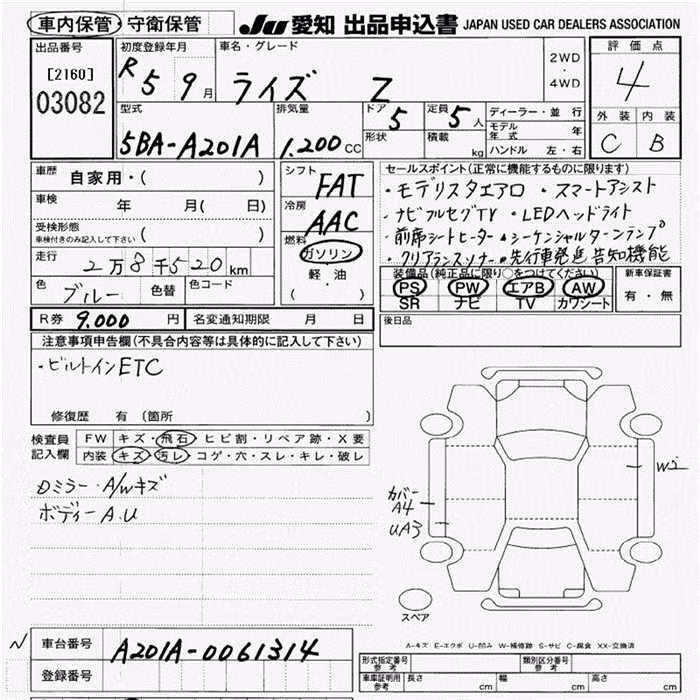 車内保管・守衛保管 JU 愛知 出品申込書 JAPAN USED CAR DEALERS ASSOCIATION
出品番号 初度登録年月 車名・グレード 2WD・4WD 評価点
[2160] R 5 9月 ライズ Z 4
03082
型式 排気量 ドア 5 定員 5人 ディーラー・並行 外装 内装
5BA-A201A 1.200CC 形状 積載 kg モデル年式 年 C B
ハンドル 左・右
車歴 自家用・( ) シフト FAT セールスポイント(正常に機能するものに限ります)
車検 年 月( 日) 冷房 AAC ・モデリスタエアロ ・スマートアシスト
受検形態 ( ) 燃料 ・ナビフルセグTV ・LEDヘッドライト
車検付きのみ記入して下さい ガソリン ・前席シートヒーター ・シーケンシャルターンランプ
走行 2万8千520km 軽油 ・クリアランスソナー ・先行車発進告知機能
色 ブルー 色替 色コード ( ) 装備品(純正品に限り○をつけてください) 新車保証書
PS PW エアB AW 有・無
SR ナビ TV カワシート
R券 9.000円 名変通知期限 月 日 後日品
注意事項申告欄(不具合内容等は具体的に記入して下さい)
・ビルトインETC
修復歴 有 (箇所
検査員記入欄 FW キズ・飛石・ヒビ割・リペア跡・X要
内装 キズ・汚レ・コゲ・穴・スレ・キレ・破レ
Dミラー・A/Wキズ
ボディーA.U
W2
カバーA4
UA3
スペア
A-キズ E-エクボ U-凹み W-補修跡 S-サビ C-腐食 XX-交換済
車台番号 A201A-0061314
登録番号
形式指定番号 参考 類別区分番号 参考
車庫証明用 参考 長さ cm 幅 cm 高さ cm